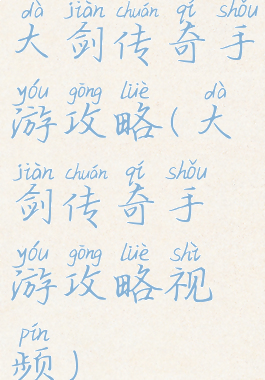 dà jiàn chuán qí shǒu
大剑传奇手
yóu gōng lüè dà
游攻略(大
jiàn chuán qí shǒu
剑传奇手
yóu gōng lüè shì
游攻略视
pín
频)